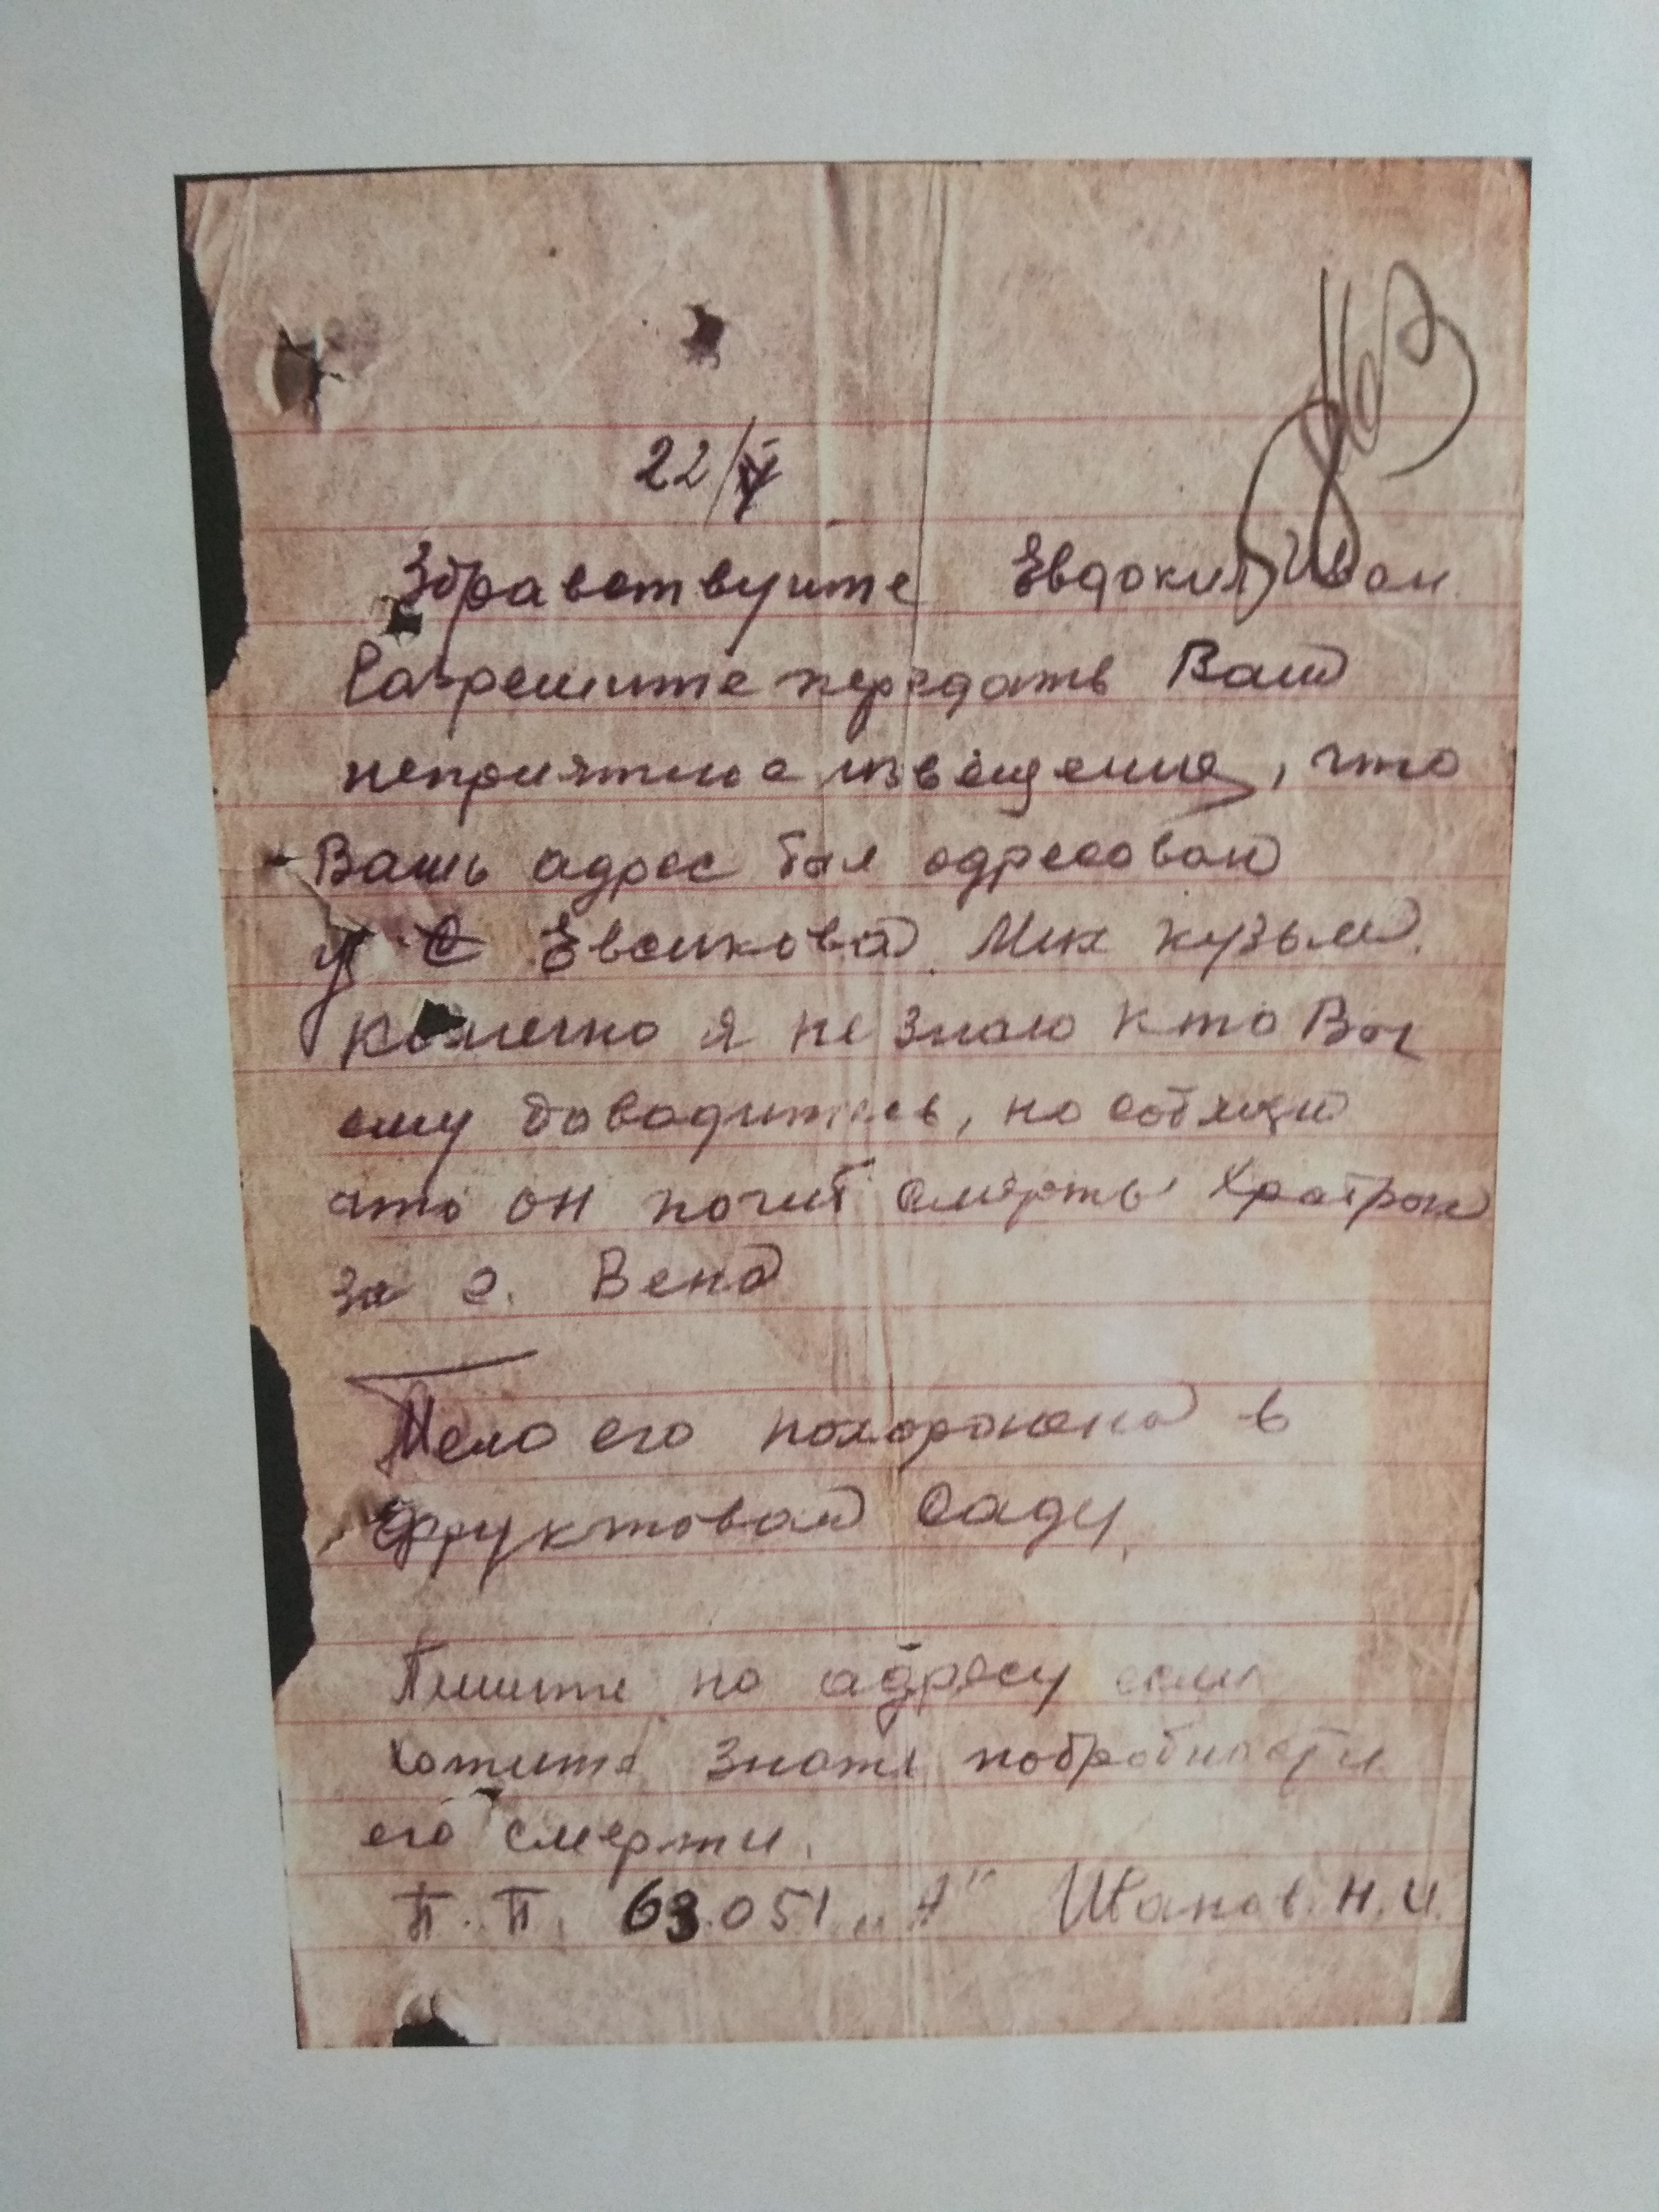 22/V
Здравствуите Евдокия Иван
Разрешите передать Вам
неприятное извещение, что
Вашь адрес был адресован
у Евсикова Мих Кузьм.
Конечно я не знаю кто Вы
ему доводитесь, но
что он погиб смертью Храбрых
за г. Вена
Тело его похоронена в
фруктовам Саду,
Пишите по адресу если
хотите знать подробности
его смерти.
П.П. 63.051 "А" Иванов. Н.И.